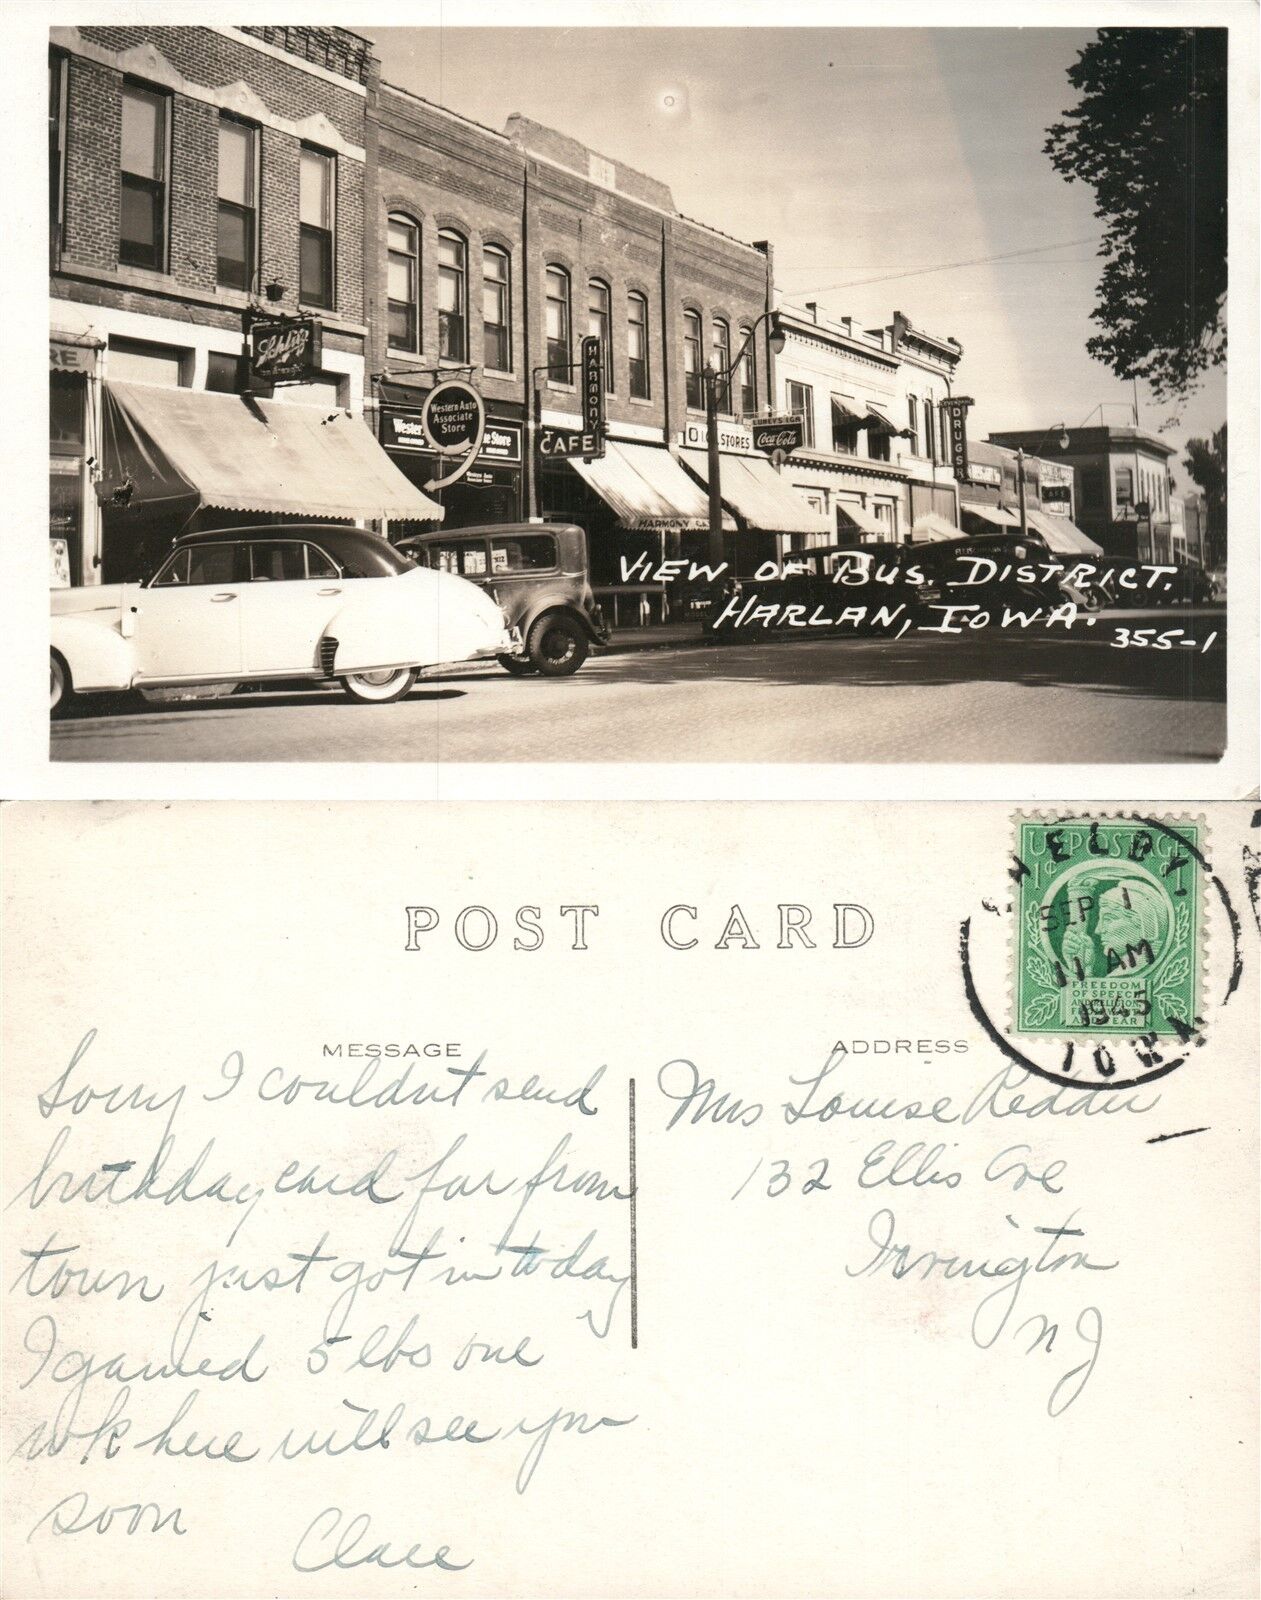 RE
Schlitz
Western Auto
Associate
Store
Western Auto Associate Store
HARMONY
CAFE
HARMONY CA
STORES
Coca-Cola
DRUGS
CAFE
VIEW OF BUS. DISTRICT.
HARLAN, IOWA.
355-1
POST CARD
U.S. POSTAGE
1¢ 1¢
FREEDOM
OF SPEECH
AND RELIGION,
FROM WANT
AND FEAR
SHELBY.
SEP 1
11 AM
1945
IOWA.
MESSAGE
ADDRESS
Sorry I couldnt send
birthday card far from
town just got in today
I gained 5 lbs one
wk here will see you
soon
Clare
Mrs Louise Redder
132 Ellis Ave
Irvington
NJ